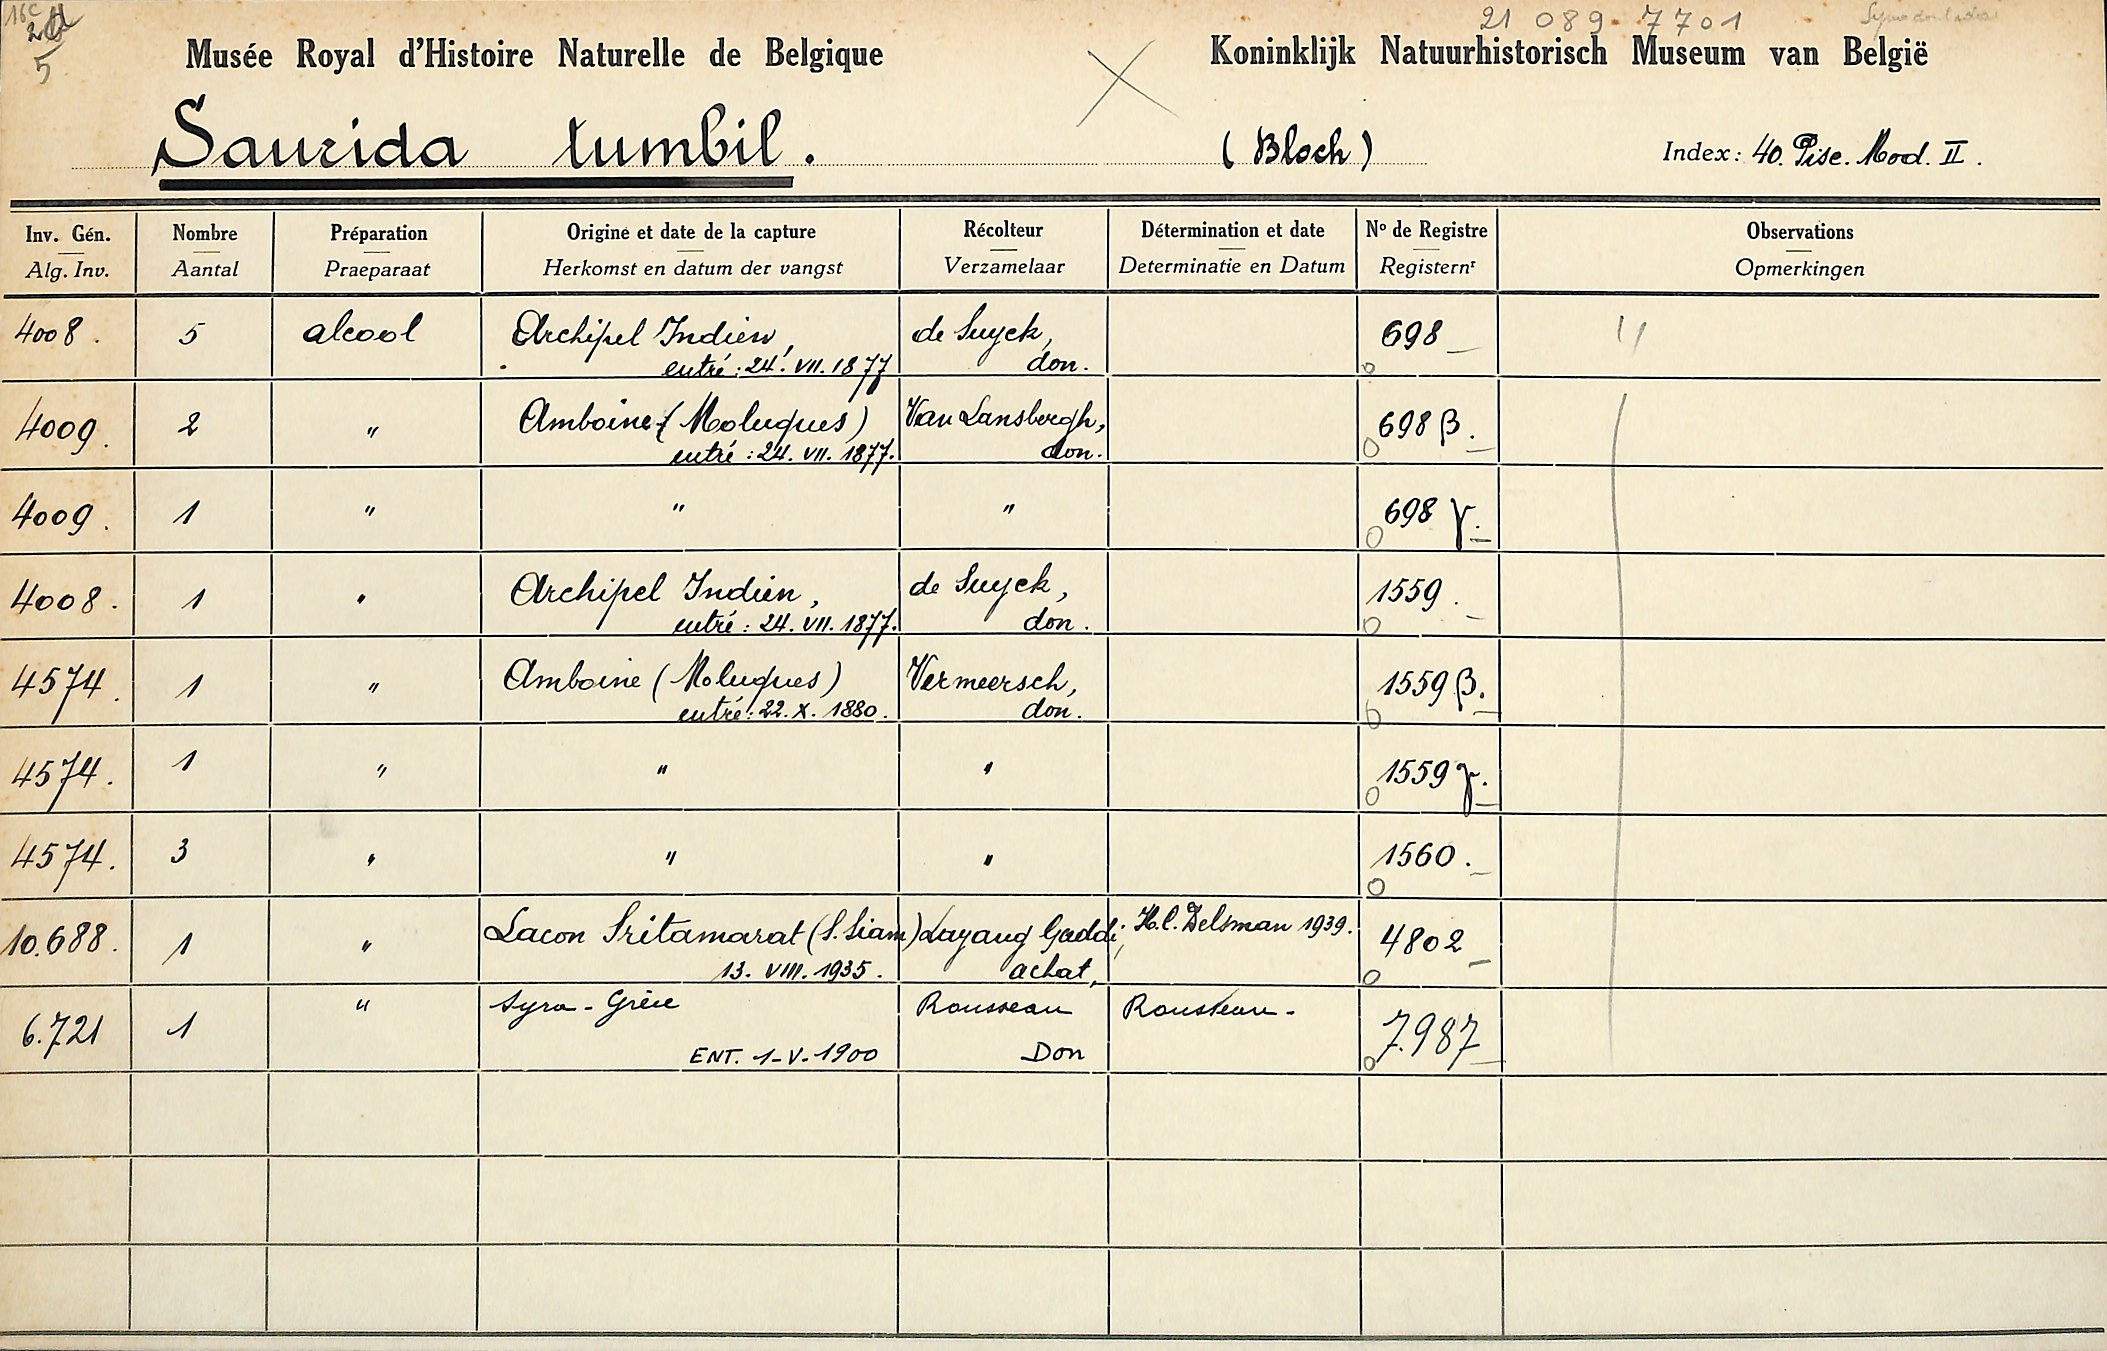 16c
5
21 089 7701
Musée Royal d'Histoire Naturelle de Belgique Koninklijk Natuurhistorisch Museum van België
Saurida tumbil. (Bloch) Index: 40. Pisc. Mod. II.
Inv. Gén. Nombre Préparation Origine et date de la capture Récolteur Détermination et date N° de Registre Observations
Alg. Inv. Aantal Praeparaat Herkomst en datum der vangst Verzamelaar Determinatie en Datum Registernr Opmerkingen
4008. 5 alcool Archipel Indien, de Suyck, 698
entré: 24. VII. 1877 don.
4009. 2 " Amboine (Moluques) Van Lansbergh, 698 β.
entré: 24. VII. 1877. don.
4009. 1 " " " 698 γ.
4008. 1 " Archipel Indien, de Suyck, 1559.
entré: 24. VII. 1877. don.
4574. 1 " Amboine (Moluques) Vermeersch, 1559 β.
entré: 22. X. 1880. don.
4574. 1 " " " 1559 γ.
4574. 3 " " " 1560.
10.688. 1 " Lacon Sritamarat (S. Siam) Layang Gaddi, H.C. Delsman 1939. 4802
13. VIII. 1935. achat,
6.721 1 " Syra - Grèce Rousseau Rousseau. 7.987
ENT. 1-V-1900 Don